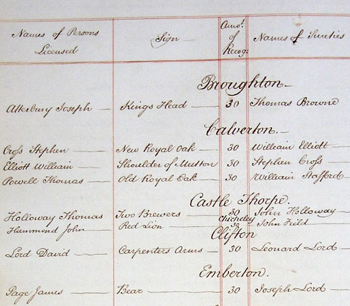 Names of Persons Licensed Sign Amo.t of Recog.s Names of Sureties
Broughton
Atterbury Joseph Kings Head 30 Thomas Browne
Calverton
Cross Stephen New Royal Oak 30 William Elliott
Elliott William Shoulder of Mutton 30 Stephen Cross
Powell Thomas Old Royal Oak 30 William Stafford
Castle Thorpe
Holloway Thomas Two Brewers 30 John Holloway
Chicheley
Hammond John Red Lion 30 John Field
Clifton
Lord David Carpenters Arms 30 Leonard Lord
Emberton
Page James Bear 30 Joseph Lord